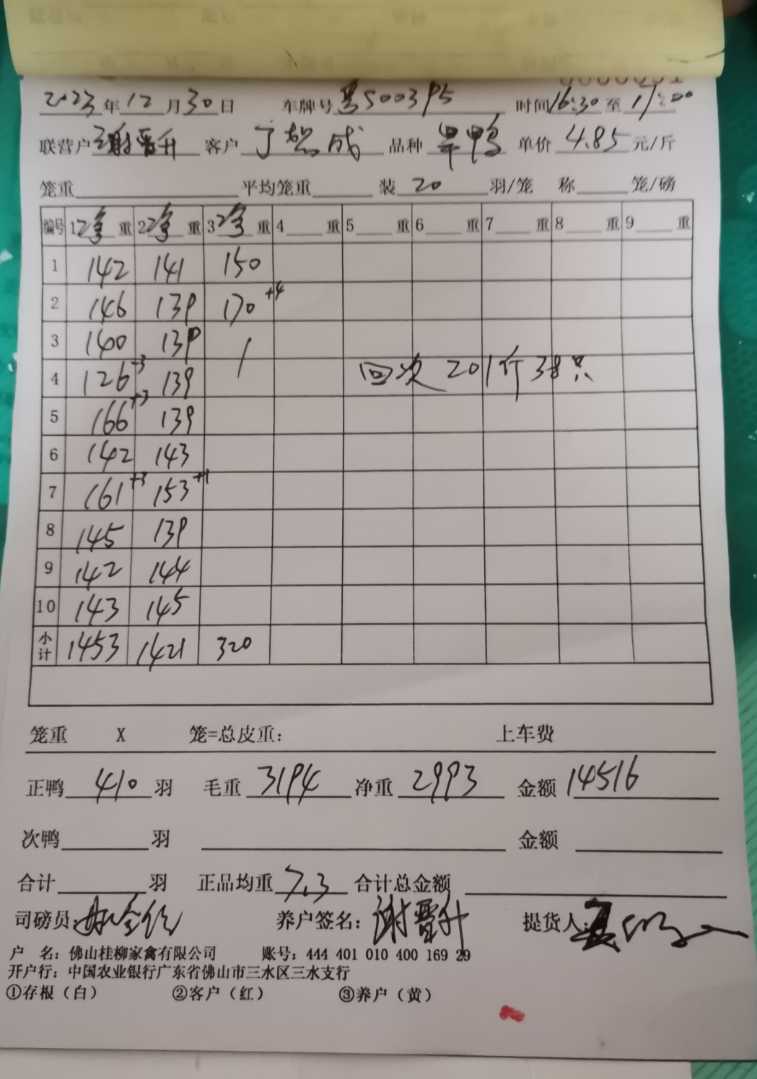 2023年12月30日 车牌号 粤S003P5 时间16:30至17:00
联营户 谢晋升 客户 丁想成 品种 旱鸭 单价 4.85 元/斤
笼重 平均笼重 装 20 羽/笼 称 笼/磅
编号 1净重 2净重 3净重 4 重 5 重 6 重 7 重 8 重 9 重
1 142 141 150
2 146 139 170+4
3 140 139 /
4 126-3 139 回次 201斤38只
5 166+3 139
6 142 143
7 161+3 153+1
8 145 139
9 142 144
10 143 145
小计 1453 1421 320
笼重 X 笼=总皮重: 上车费
正鸭 410 羽 毛重 3194 净重 2993 金额 14516
次鸭 羽 金额
合计 羽 正品均重 7.3 合计总金额
司磅员: 养户签名: 谢晋升 提货人:
户 名: 佛山桂柳家禽有限公司 账号: 444 401 010 400 169 29
开户行: 中国农业银行广东省佛山市三水区三水支行
①存根（白） ②客户（红） ③养户（黄）